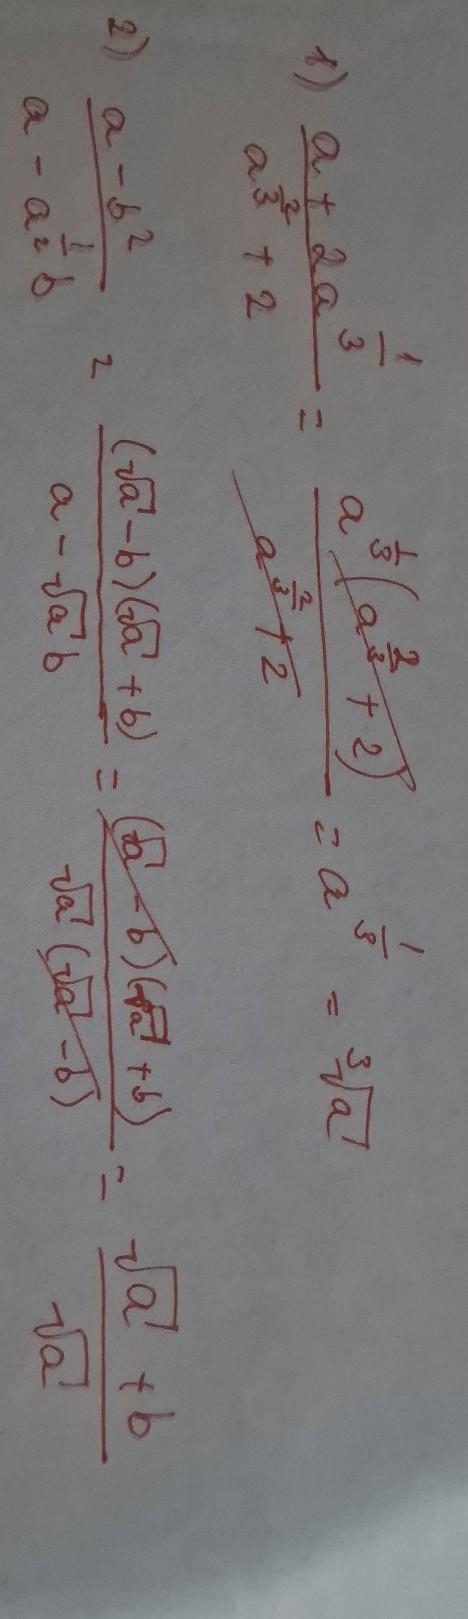 1) \frac{a + 2a^{\frac{1}{3}}}{a^{\frac{2}{3}} + 2} = \frac{a^{\frac{1}{3}}(a^{\frac{2}{3}} + 2)}{a^{\frac{2}{3}} + 2} = a^{\frac{1}{3}} = \sqrt[3]{a}
2) \frac{a - b^2}{a - a^{\frac{1}{2}}b} = \frac{(\sqrt{a} - b)(\sqrt{a} + b)}{a - \sqrt{a}b} = \frac{(\sqrt{a} - b)(\sqrt{a} + b)}{\sqrt{a}(\sqrt{a} - b)} = \frac{\sqrt{a} + b}{\sqrt{a}}